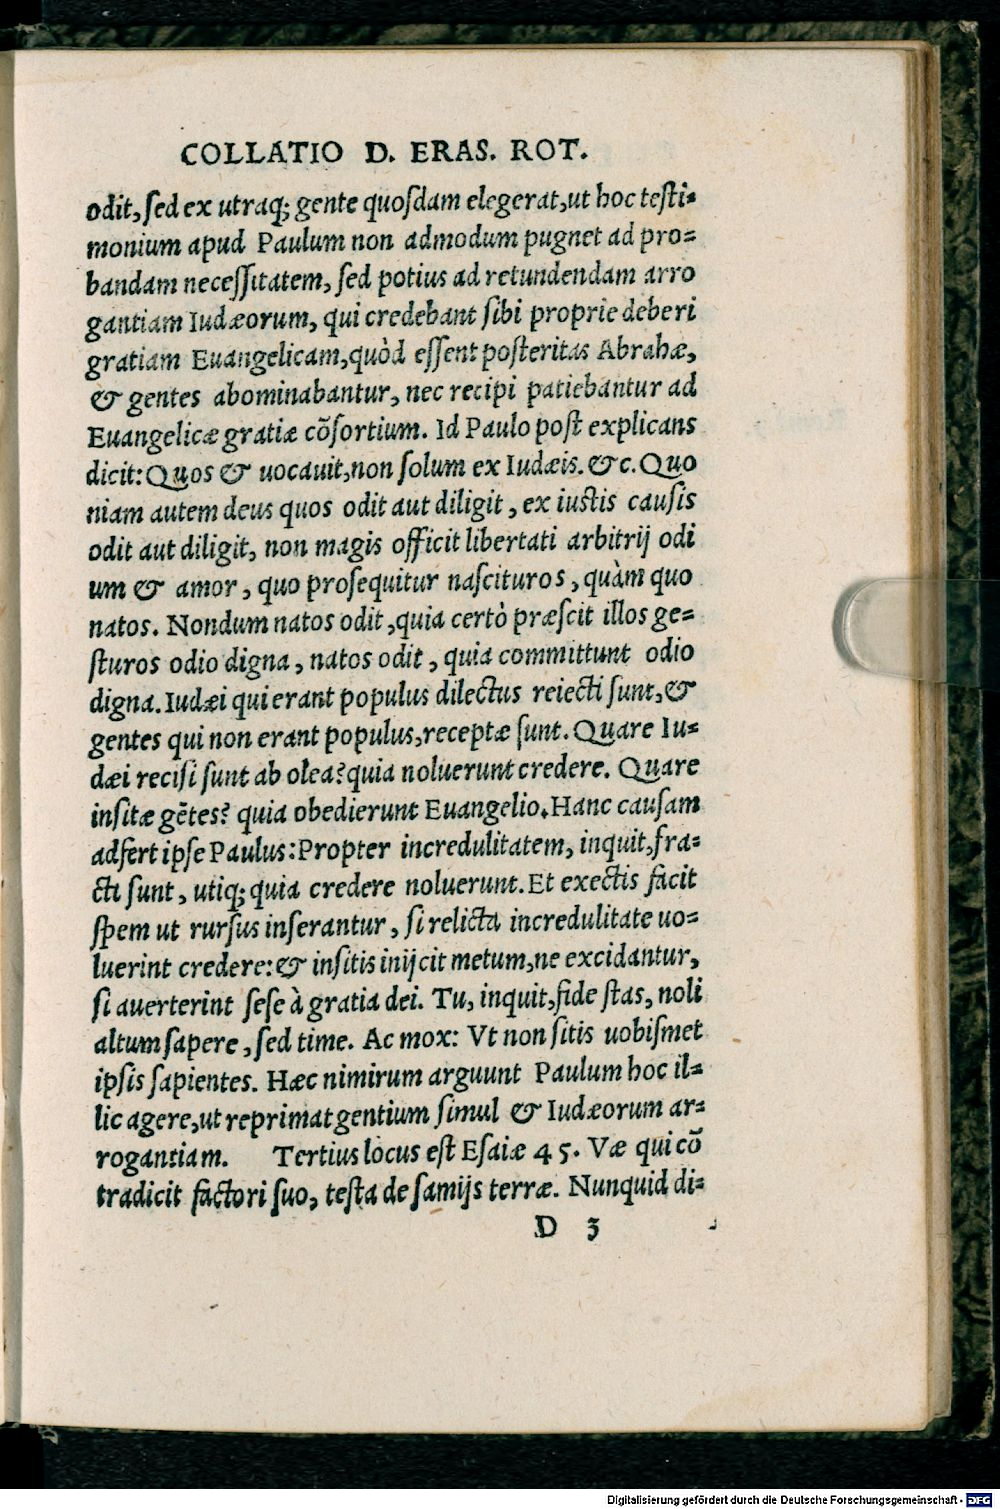 COLLATIO D. ERAS. ROT.
odit, ſed ex utraq; gente quoſdam elegerat, ut hoc teſti-
monium apud Paulum non admodum pugnet ad pro-
bandam neceſſitatem, ſed potius ad retundendam arro
gantiam Iudæorum, qui credebant ſibi proprie deberi
gratiam Euangelicam, quòd eſſent poſteritas Abrahæ,
& gentes abominabantur, nec recipi patiebantur ad
Euangelicæ gratiæ cõſortium. Id Paulo poſt explicans
dicit: Quos & uocauit, non ſolum ex Iudæis. &c. Quo
niam autem deus quos odit aut diligit, ex iuſtis cauſis
odit aut diligit, non magis officit libertati arbitrij odi
um & amor, quo proſequitur naſcituros, quàm quo
natos. Nondum natos odit, quia certò præſcit illos ge-
ſturos odio digna, natos odit, quia committunt odio
digna. Iudæi qui erant populus dilectus reiecti ſunt, &
gentes qui non erant populus, receptæ ſunt. Quare Iu-
dæi reciſi ſunt ab olea? quia noluerunt credere. Quare
inſitæ gẽtes? quia obedierunt Euangelio. Hanc cauſam
adfert ipſe Paulus: Propter incredulitatem, inquit, fra-
cti ſunt, utiq; quia credere noluerunt. Et exectis facit
ſpem ut rurſus inſerantur, ſi relicta incredulitate uo-
luerint credere: & inſitis inijcit metum, ne excidantur,
ſi auerterint ſeſe à gratia dei. Tu, inquit, fide ſtas, noli
altum ſapere, ſed time. Ac mox: Vt non ſitis uobiſmet
ipſis ſapientes. Hæc nimirum arguunt Paulum hoc il-
lic agere, ut reprimat gentium ſimul & Iudæorum ar-
rogantiam. Tertius locus eſt Eſaiæ 45. Væ qui cõ
tradicit factori ſuo, teſta de ſamijs terræ. Nunquid di-
D 3
Digitalisierung gefördert durch die Deutsche Forschungsgemeinschaft - DFG